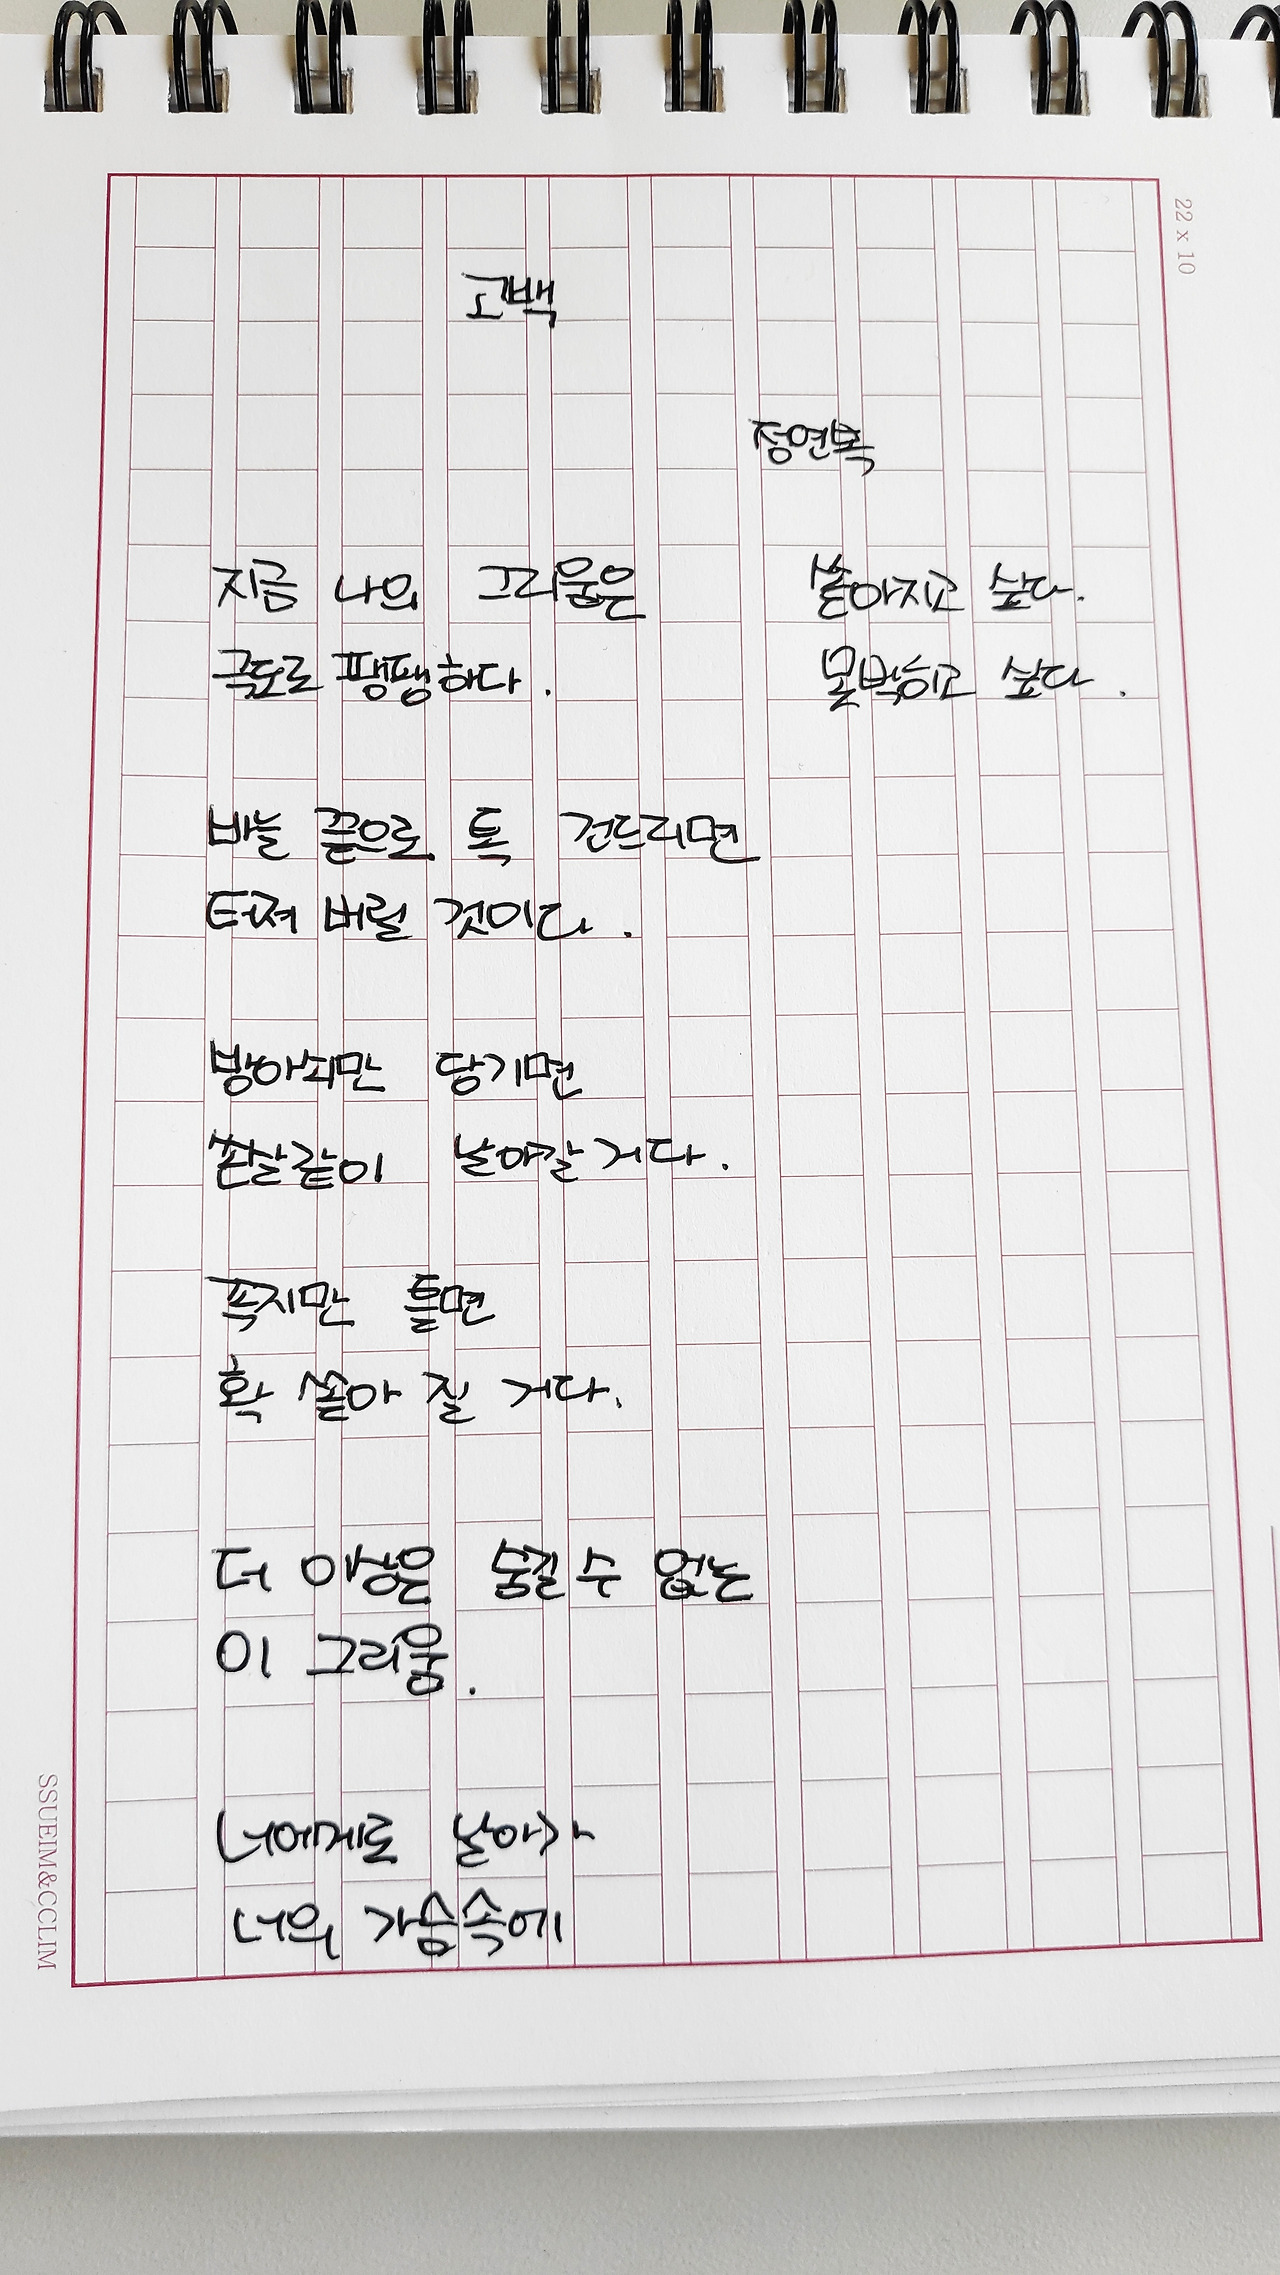 22 x 10
고백
정연복
지금 나의 그리움은
극도로 팽팽하다.
바늘 끝으로 톡 건드리면
터져 버릴 것이다.
방아쇠만 당기면
쏜살같이 날아갈 거다.
꼭지만 틀면
확 쏟아 질 거다.
더 이상은 숨길 수 없는
이 그리움.
너에게로 날아가
너의 가슴속에
쏟아지고 싶다.
못박히고 싶다.
SSUEIM&CCLIM